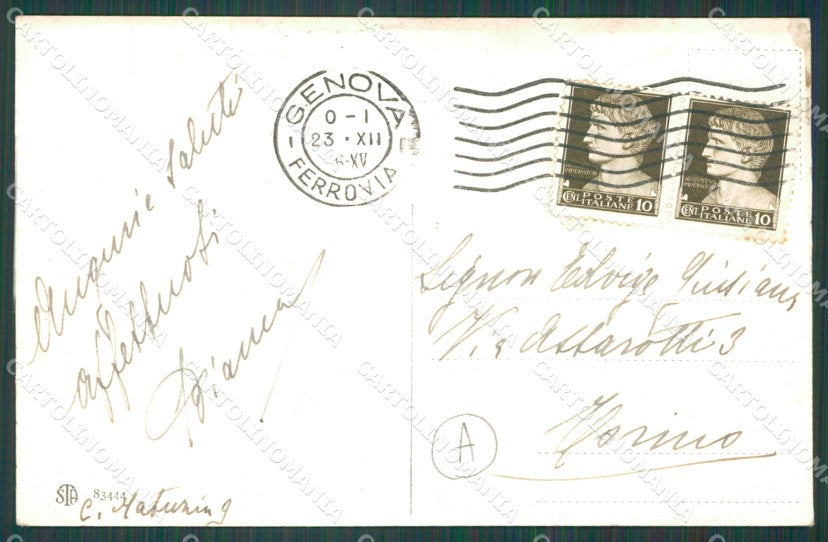 GENOVA
0-1
23 · XII
6-XV
FERROVIA
POSTE ITALIANE
CENT. 10
POSTE ITALIANE
CENT. 10
Auguri e saluti
affettuosi
Bianca
Edvige Giuliani
Via Assarotti 3
Torino
A
STA 83444
CARTOLINOMANIA